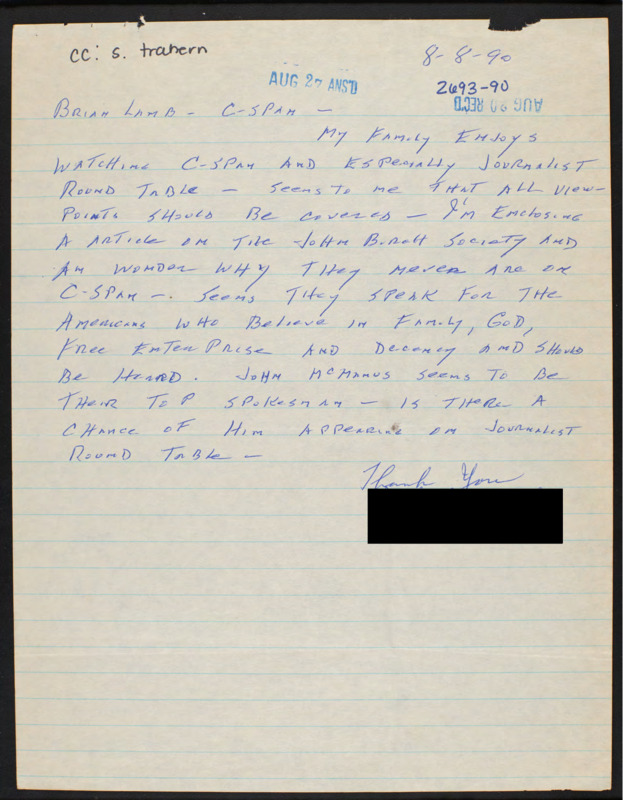 cc: s. trahern
8-8-90
AUG 27 ANS'D
2693-90
AUG 20 REC'D
BRIAN LAMB - C-SPAN -
MY FAMILY ENJOYS
WATCHING C-SPAN AND ESPECIALLY JOURNALIST
ROUND TABLE - SEEMS TO ME THAT ALL VIEW-
POINTS SHOULD BE COVERED - I'M ENCLOSING
A ARTICLE ON THE JOHN BIRCH SOCIETY AND
AN WONDER WHY THEY NEVER ARE ON
C-SPAN -. SEEMS THEY SPEAK FOR THE
AMERICANS WHO BELIEVE IN FAMILY, GOD,
FREE ENTERPRISE AND DECENCY AND SHOULD
BE HEARD. JOHN MCMANUS SEEMS TO BE
THEIR TOP SPOKESMAN - IS THERE A
CHANCE OF HIM APPEARING ON JOURNALIST
ROUND TABLE -
Thank You